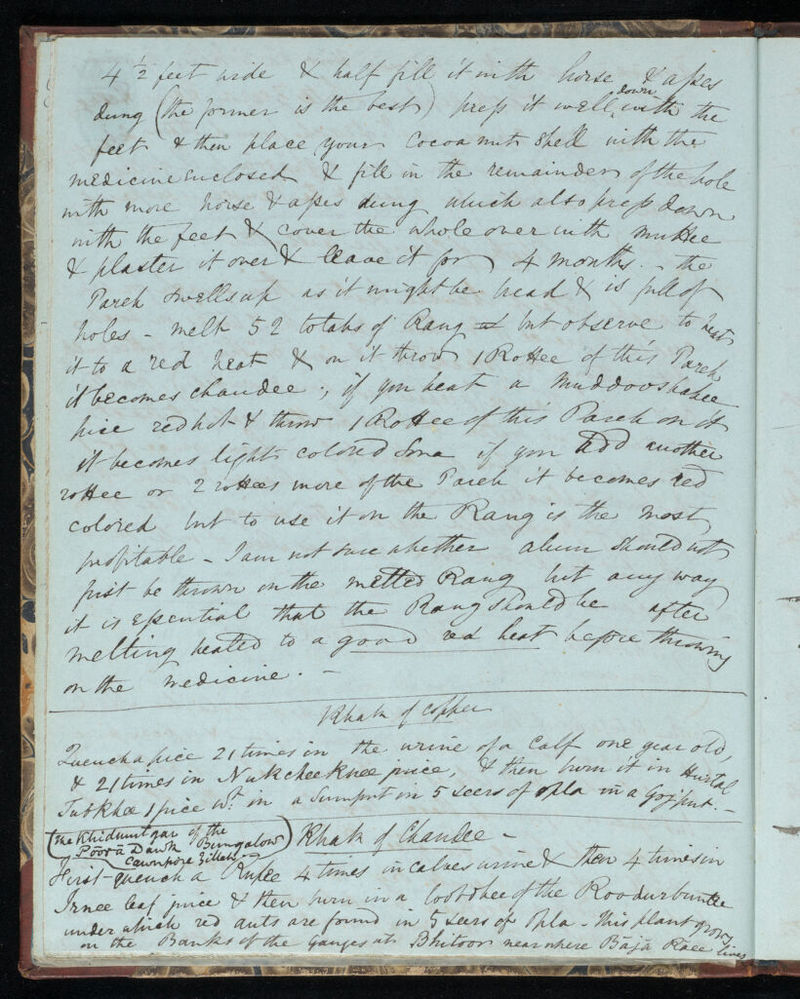 4 1/2 feet wide & half fill it with horse & apes
dung (the former is the best) press it well down with the
feet & then place your Cocoa nut Shell with the
medicine enclosed & fill in the remainder of the hole
with more horse & apes dung which also press down
with the feet & cover the whole over with muttee
& plaster it over & leave it for 4 months. - the
Pareh swells up as it might be bead & is full of
holes - melt 52 tolahs of Rang but observe to heat
it to a red heat & on it throw 1 Rottee of this Pareh
it becomes chandee ; if you heat a Muddooshahee
pice red hot & throw 1 Rottee of this Pareh on it
it becomes light colored Sona if you add another
rottee or 2 rottees more of the Pareh it becomes red
colored but to use it on the Rang is the most
profitable - I am not sure whether alum should not
first be thrown on the melted Rang but any way
it is essential that the Rang should be after
melting heated to a good red heat before throwing
on the medicine. -
Khak of Copper
Quench a pice 21 times in the urine of a Calf one year old,
& 21 times in Nukcheeknee juice, & then burn it in Hurtal
Tubkhee 1 pice wt. in a Sumput in 5 seers of Opla in a Gojput. -
(the Khidmutgar of the
Poorā Dawk Bungalow)
Cawnpore Zillah
Khak of Chandee -
First quench a Rupee 4 times in calves urine & then 4 times in
Irnee leaf juice & then burn in a loobdhee of the Roodurbuntee
under which red ants are found in 5 seers of Opla - This plant grows
on the Banks of the Ganges at Bhitoor near where Bājā Raee lives